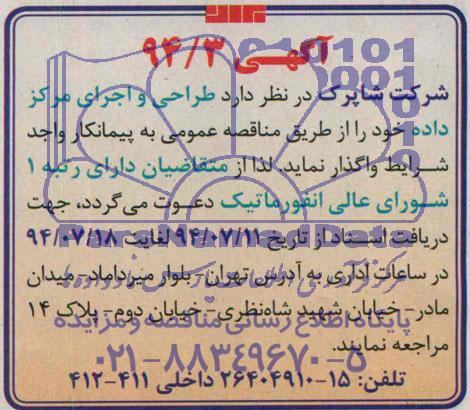 آگهی ۹۴/۳
شرکت شاپرک در نظر دارد طراحی و اجرای مرکز
داده خود را از طریق مناقصه عمومی به پیمانکار واجد
شرایط واگذار نماید. لذا از متقاضیان دارای رتبه ۱
شورای عالی انفورماتیک دعوت می‌گردد، جهت
دریافت اسناد از تاریخ ۹۴/۰۷/۱۱ لغایت ۹۴/۰۷/۱۸
در ساعات اداری به آدرس تهران- بلوار میرداماد- میدان
مادر- خیابان شهید شاه‌نظری- خیابان دوم- پلاک ۱۴
پایگاه اطلاع رسانی مناقصه و مزایده
مراجعه نمایند.
۰۲۱-۸۸۳۴۹۶۷۰-۵
تلفن: ۱۵-۲۶۴۰۴۹۱۰ داخلی ۴۱۱-۴۱۲